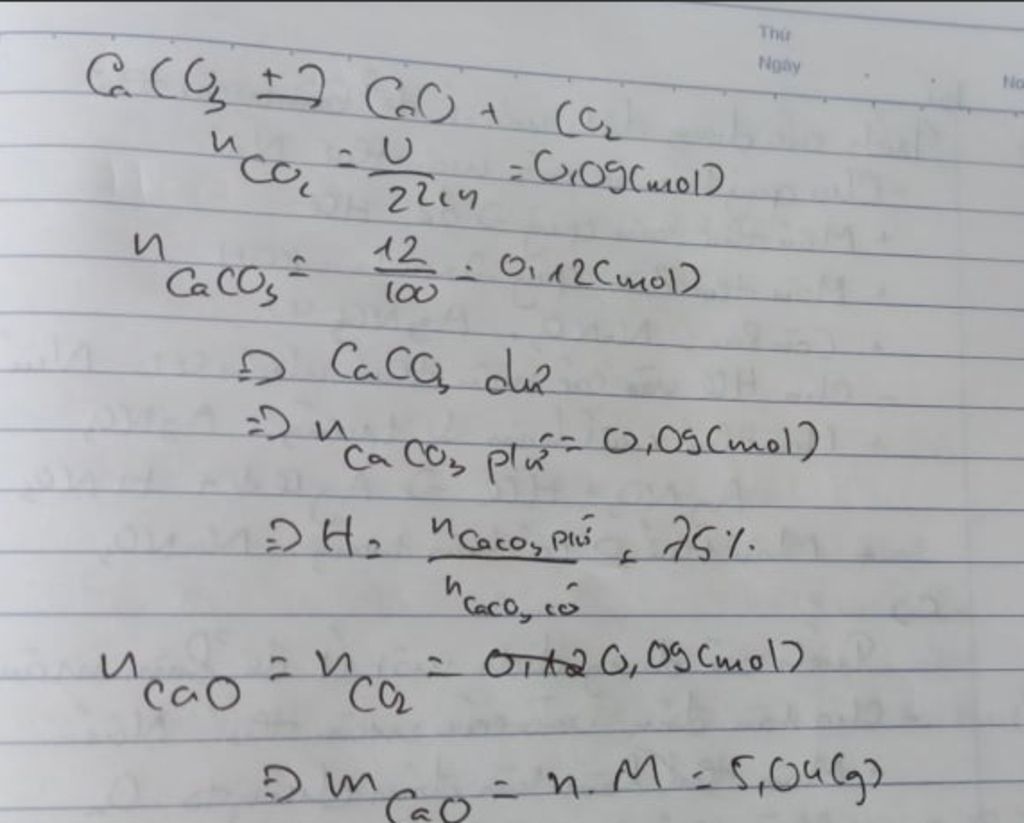 Thứ
Ngày
No
CaCO3 t→ CaO + CO2
nCO2 = V/22,4 = 0,09(mol)
nCaCO3 = 12/100 = 0,12(mol)
=> CaCO3 dư
=> nCaCO3 pứ = 0,09(mol)
=> H = nCaCO3 pứ/nCaCO3 có = 75%
nCaO = nCO2 = 0,12 0,09(mol)
=> mCaO = n.M = 5,04(g)